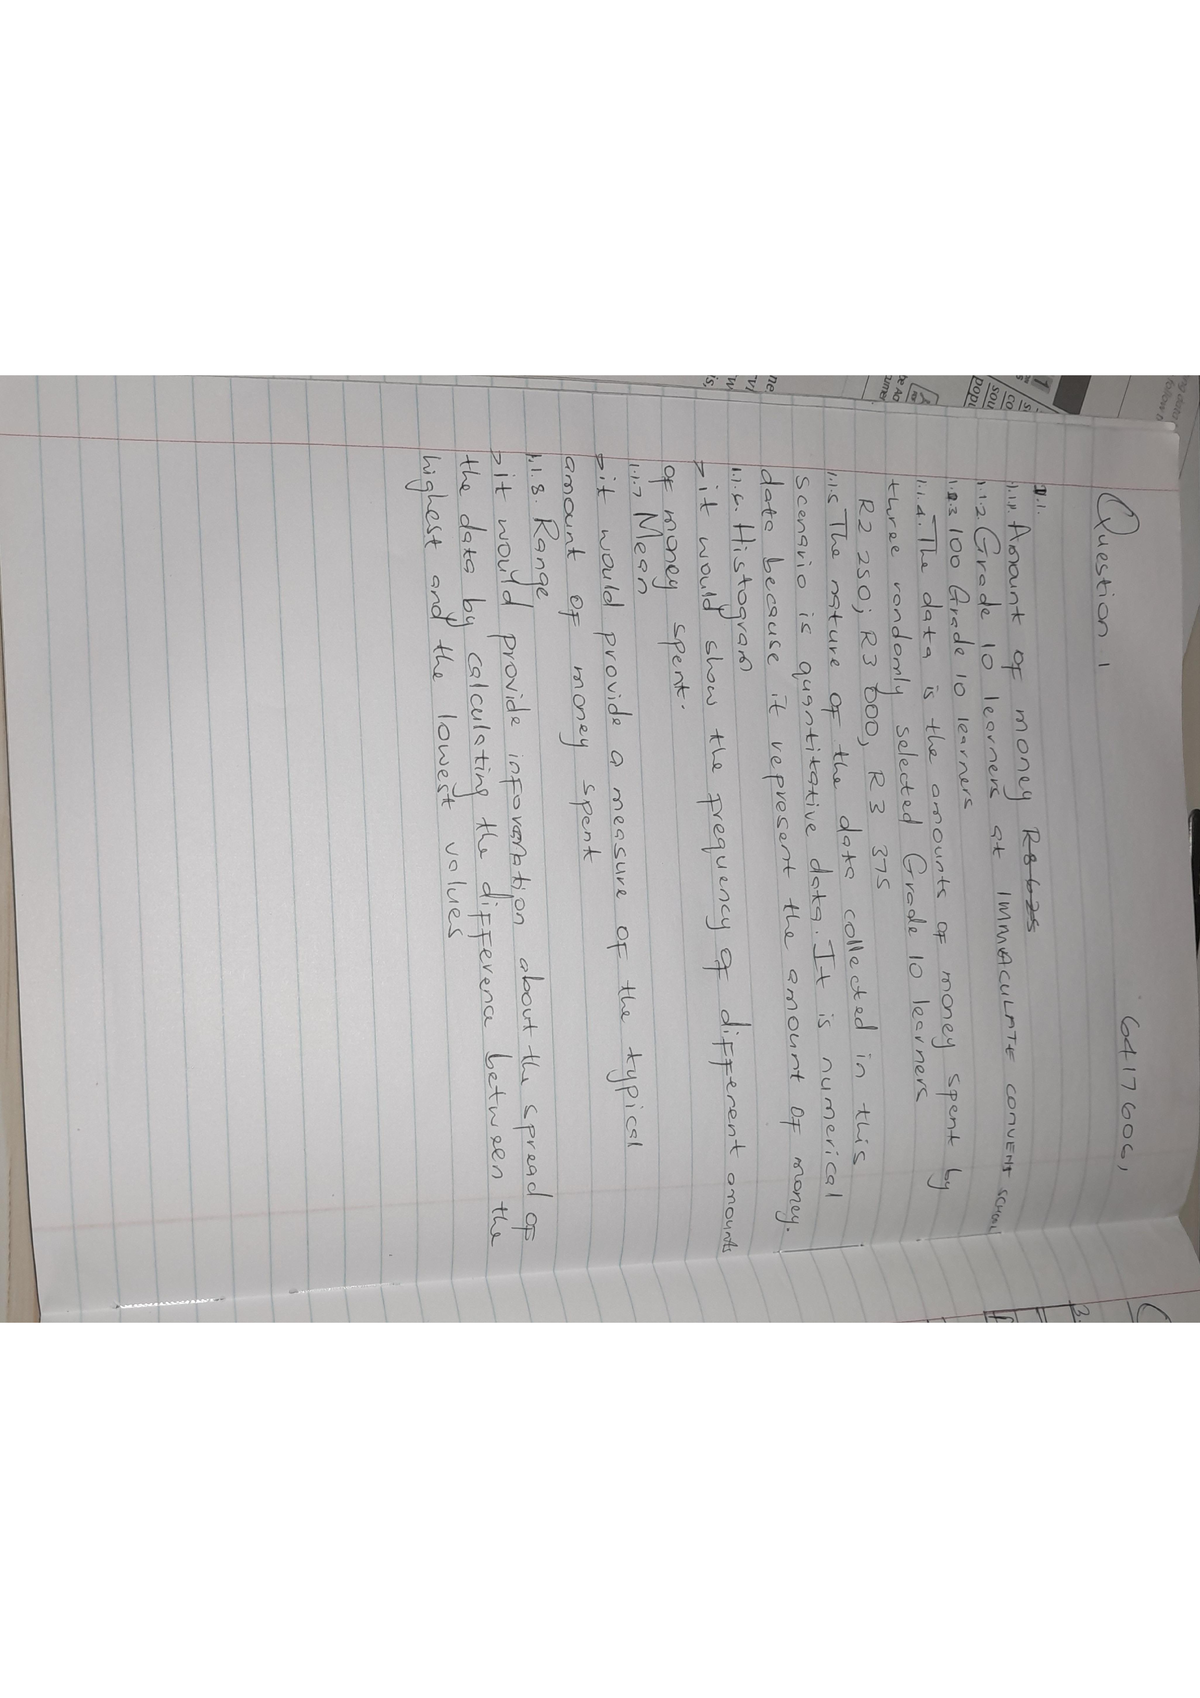 6417606,
Question 1
1.1.
1.1.1. Amount of money R8 625
1.1.2 Grade 10 learners at IMMACULATE CONVENT SCHOOL
1.1.3 100 Grade 10 learners
1.1.4. The data is the amounts of money spent by
three randomly selected Grade 10 learners
R2 250; R3 000, R3 375
1.1.5 The nature of the data collected in this
scenario is quantitative data. It is numerical
data because it represent the amount of money.
1.1.6. Histogram
> it would show the frequency of different amounts
of money spent.
1.1.7 Mean
> it would provide a measure of the typical
amount of money spent
1.1.8. Range
> it would provide information about the spread of
the data by calculating the difference between the
highest and the lowest values